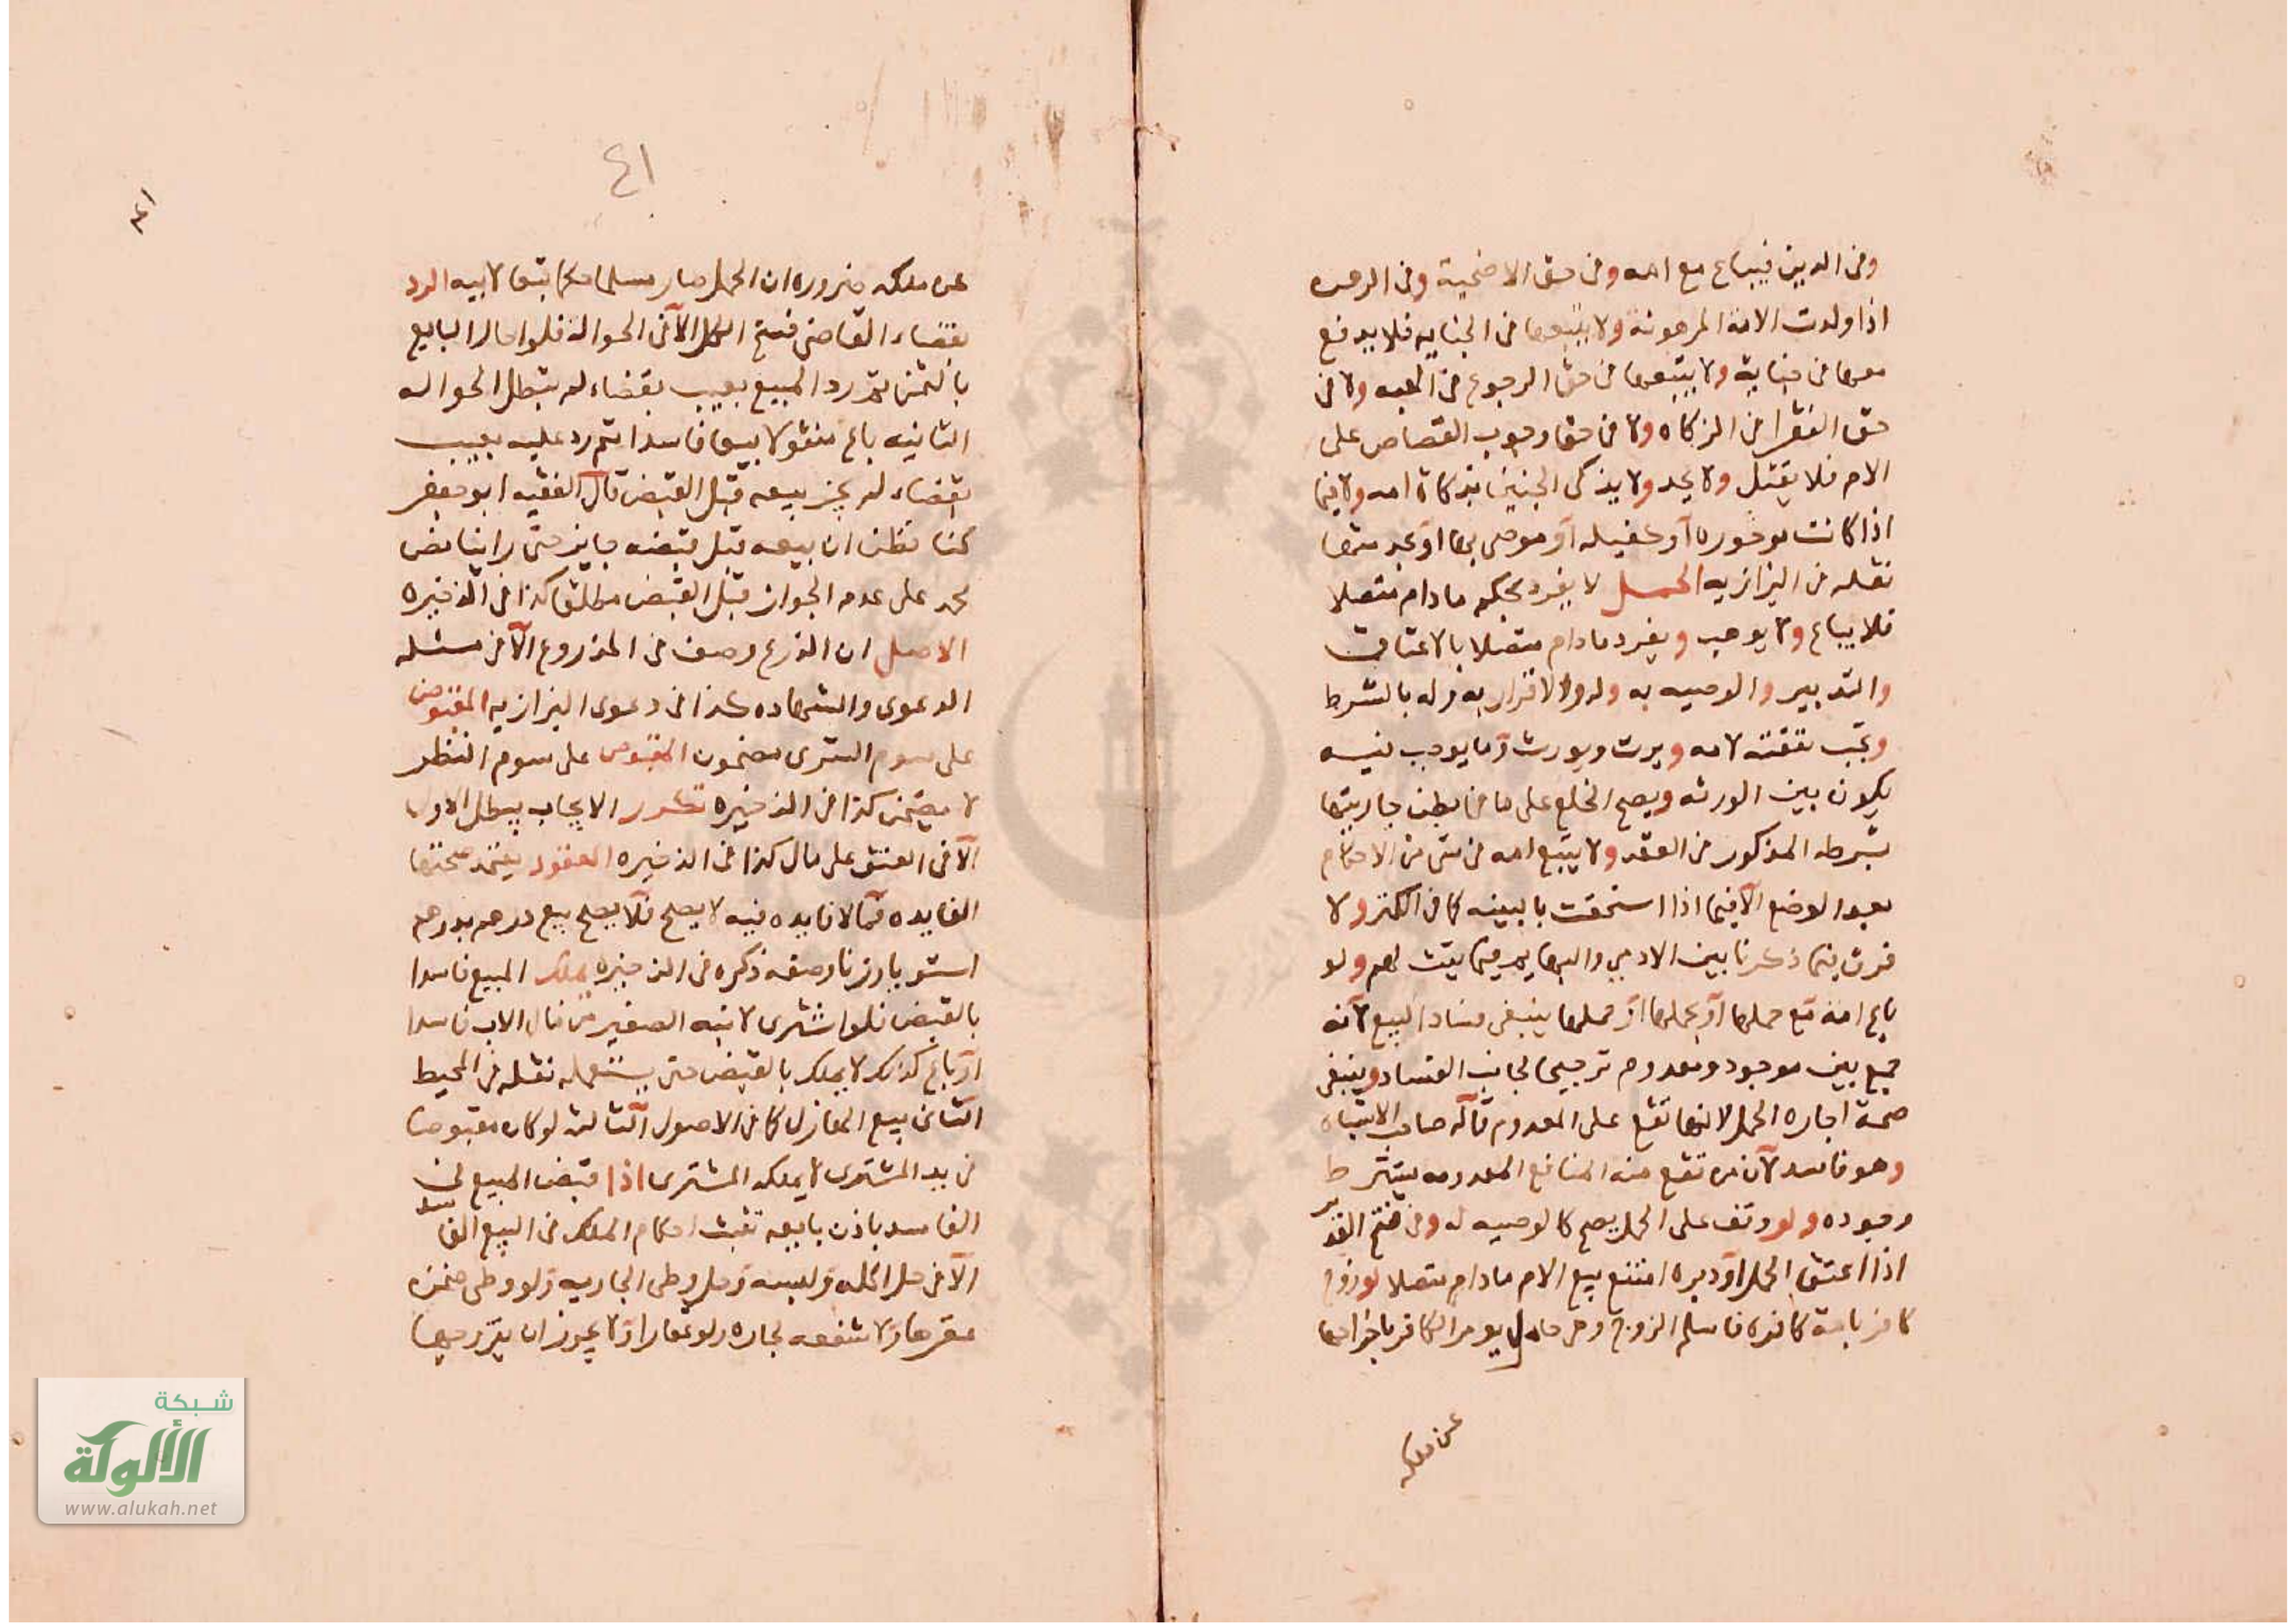 وفى الدين فيباع مع امه وفى حق الاضحية وفى الرهن
اذا ولدت الامة المرهونة ولا يتبعها فى الجنايه فلا يدفع
معها فى جناية ولا يتبعها فى حق الرجوع فى الهبه ولا فى
حق الفقرا فى الزكاه ولا فى حق وجوب القصاص على
الام فلا يقتل ولا يحد ولا يذكى الجنين بذكاة امه ولا فيما
اذا كانت موجوره او كفيله او موصى بها او بخدمتها
نقله فى البزازيه الحمل لا يفرد بحكم مادام متصلا
فلا يباع ولا يوهب ويفرد مادام متصلا بالاعتاق
والتدبير والوصيه به وله والاقرار به وله بالشرط
وتجب نفقته لامه ويرث ويورث وما يوجب فيه
يكون بين الورثه ويصح الخلع على ما فى بطن جاريتها
بشرطه المذكور فى العقد ولا يتبع امه فى شى من الاحكام
بعد الوضع الا فيما اذا استحقت بالبينه كما فى الكنز ولا
فرق فيما ذكرنا بين الادمي والبهايم فيما يثبت لهم ولو
باع امة مع حملها او بحملها او حملها ينبغى فساد البيع لانه
جمع بين موجود ومعدوم ترجيحا لجانب الفساد وينبغى
صحة اجاره الحمل لانها تقع على المعدوم قاله صاحب الاشباه
وهو فاسد لان من تقع منه المنافع المعدومه يشترط
وجوده ولو وقف على الحمل يصح كالوصيه له وفى فتح القدير
اذا اعتق الحمل او دبره امتنع بيع الام مادام متصلا لو زوج
كافر بامة كافره فاسلم الزوج وهى حامل يومر الكافر باخراجها
عن ملكه
٤١
٤١
عن ملكه ضروره ان الحمل صار مسلما حكما تبعا لابيه الرد
بقضاء القاضى فسخ الكل الا فى الحوالة فلو احال البايع
بالثمن ثم رد المبيع بعيب بقضاء لم تبطل الحواله
الثانيه باع منقولا بيعا فاسدا ثم رد عليه بعيب
بقضاء لم يجز بيعه قبل القبض قال الفقيه ابو جعفر
كنا نظن ان بيعه قبل قبضه جايز حتى راينا نص
محمد على عدم الجواز قبل القبض مطلقا كذا فى الذخيره
الاصل ان الذرع وصف فى المذروع الا فى مسئله
الدعوى والشهاده كذا فى دعوى البزازيه المقبوض
على سوم الشرى مضمون المقبوض على سوم النظر
لا يضمن كذا فى الذخيره تكرر الايجاب يبطل الاول
الا فى العتق على مال كذا فى الذخيره العقود يعتمد صحتها
الفايده فما لا فايده فيه لا يصح فلا يصح بيع درهم بدرهم
استويا وزنا وصفه ذكره فى الذخيره يملك المبيع فاسدا
بالقبض فلو اشترى لابنه الصغير من مال الاب فاسدا
او باع كذلك لا يملك بالقبض حتى يستعمله نقله فى المحيط
الثانى بيع الهازل كما فى الاصول الثالث لو كان مقبوضا
فى يد المشترى لا يملكه المشترى اذا قبض المبيع فى
الفاسد باذن بايعه تثبت احكام الملك فى البيع الفاسد
الا فى حل اكله ولبسه وحل وطى الجاريه ولو وطى ضمن
عقرها ولا شفعه لجاره ولو عقارا ولا يجوز ان يتزوجها